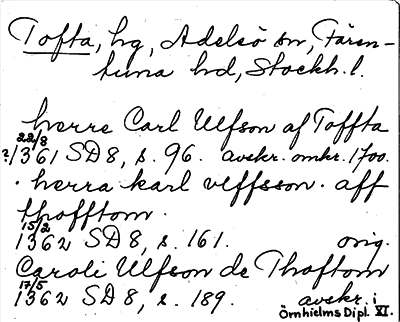 Tofta, hg, Adelsö sn, Fären-
tuna hd, Stockh. l.
herre Carl Ulfson af Toffta
22/8
?1361 SD 8, s. 96. avskr. omkr. 1700.
· herra karl vlffsson · aff
thofftom ·
15/2
1362 SD 8, s. 161. orig.
Caroli Ulfson de Thoftom
17/5
1362 SD 8, s. 189. avskr. i
Örnhielms Dipl. VI.